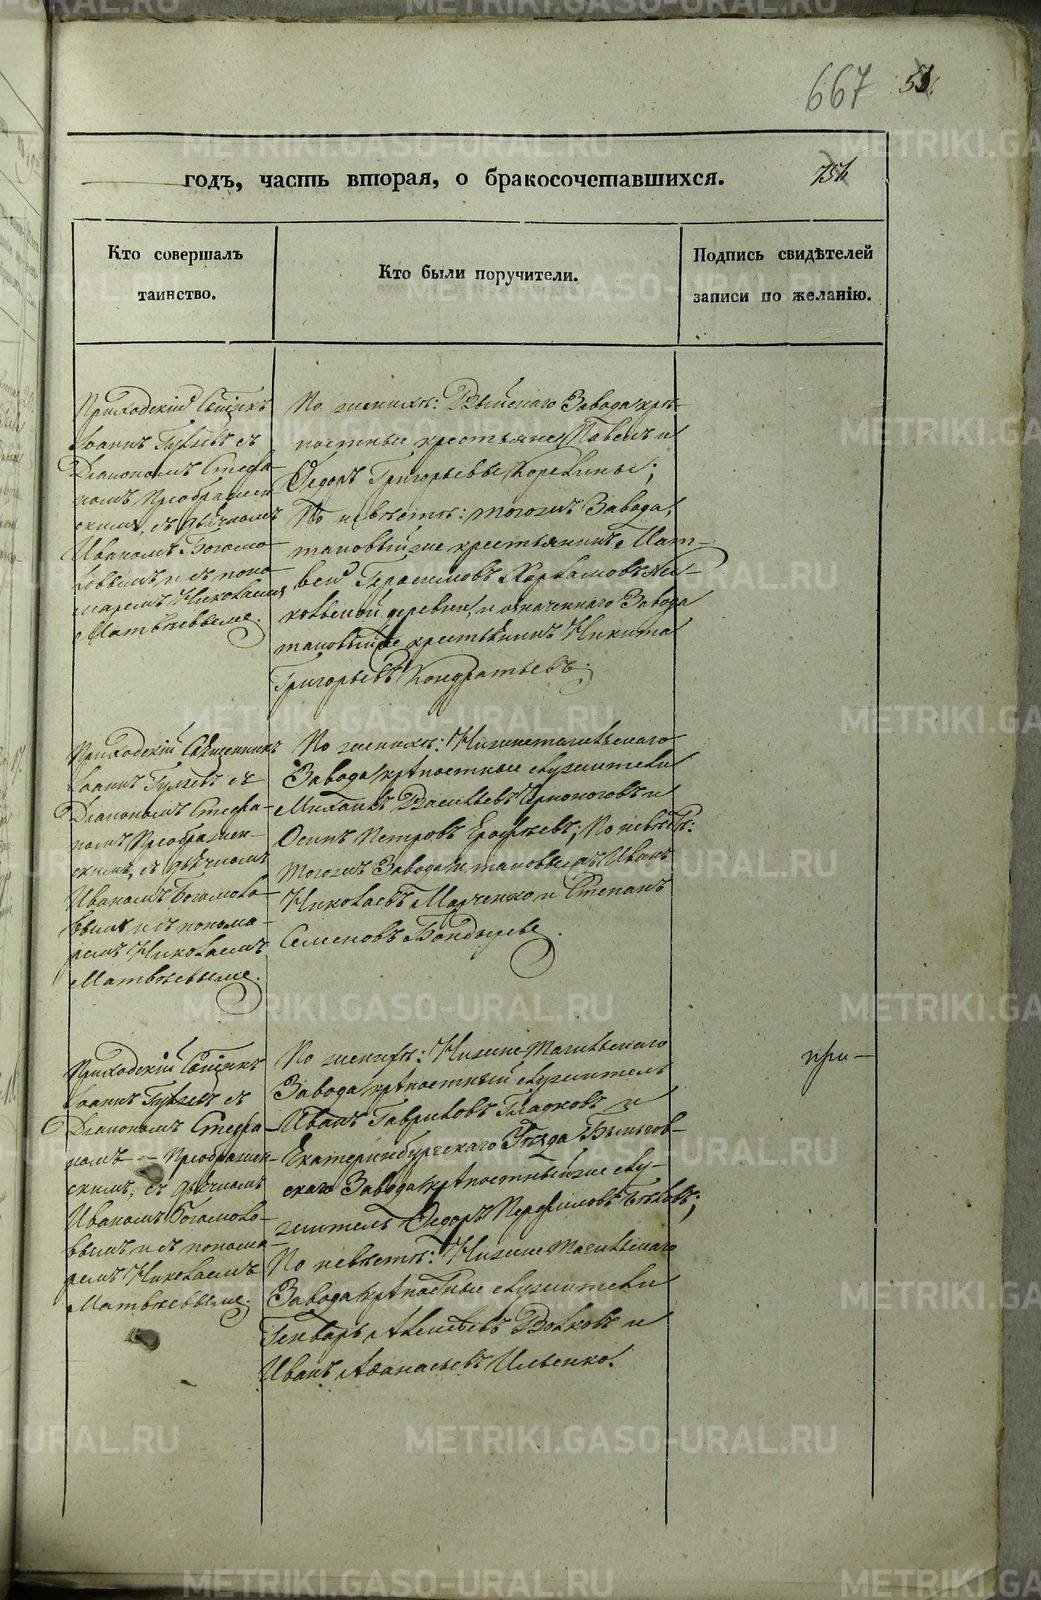 667
53.
годъ, часть вторая, о бракосочетавшихся.
Кто совершалъ
таинство.
Кто были поручители.
Подпись свидѣтелей
записи по желанію.
Приходскій Сщнкъ
Іоаннъ съ
Діакономъ Стефа-
номъ Преображен
скимъ, съ дьячкомъ
Иваномъ Богомо-
ловымъ и съ поно-
маремъ Николаемъ
Матвѣевымъ.
По женихѣ: Выйскаго Завода крѣ-
постные крестьяне Павелъ и
Ѳедоръ Григорьевы
По невѣстѣ: тогожъ Завода,
таковый же крестьянинъ Мат-
вей Герасимовъ Харламовъ
деревни, и означеннаго Завода
таковый же крестьянинъ Никита
Григорьевъ Кондратьевъ.
Приходскій Священникъ
Іоаннъ съ
Діакономъ Стефа-
номъ Преображен-
скимъ, съ дьячкомъ
Иваномъ Богомоло-
вымъ и съ понома-
ремъ Николаемъ
Матвѣевымъ.
По женихѣ: Нижнетагильскаго
Завода крѣпостные служители
Михаилъ Васильевъ Черноноговъ и
Осипъ Петровъ Ерофѣевъ; По невѣстѣ:
тогожъ Завода таковые жъ Иванъ
Николаевъ Марченко и Степанъ
Семеновъ Бондыревъ.
Приходскій Сщнкъ
Іоаннъ съ
Діакономъ Стефа-
номъ Преображен-
скимъ, съ дьячкомъ
Иваномъ Богомоло-
вымъ и съ понома-
ремъ Николаемъ
Матвѣевымъ.
По женихѣ: Нижнетагильскаго
Завода крѣпостный служитель
Иванъ Гавриловъ Гладковъ и
Екатеринбургскаго Уѣзда
скаго Завода крѣпостный же слу-
житель Ѳедоръ Перфиловъ Бѣловъ;
По невѣстѣ: Нижнетагильскаго
Завода крѣпостные служители
Генварь Алексѣевъ Волковъ и
Иванъ Аѳанасьевъ Ильенко.
при-
METRIKI.GASO-URAL.RU